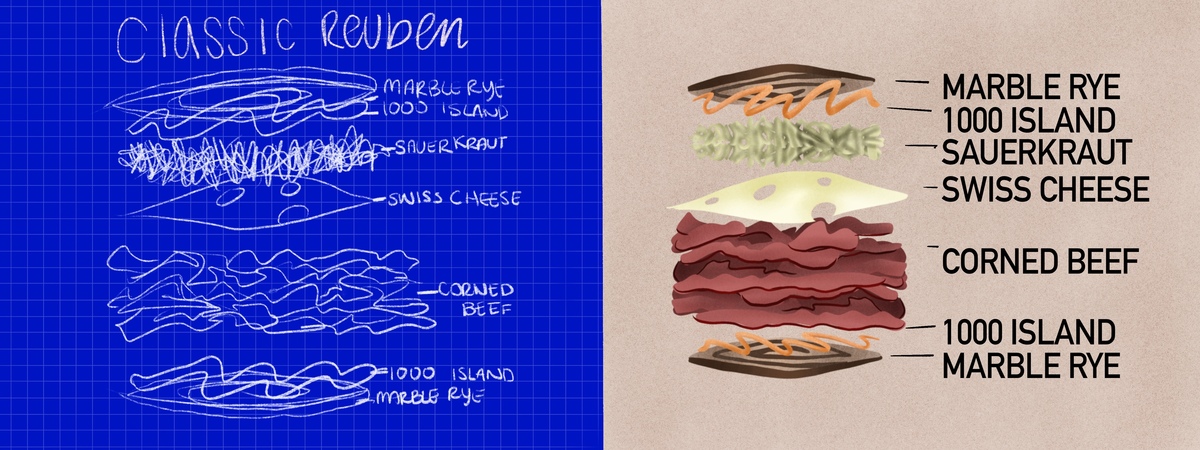 Classic Reuben
MARBLE RYE
1000 ISLAND
SAUERKRAUT
SWISS CHEESE
CORNED
BEEF
1000 ISLAND
MARBLE RYE
MARBLE RYE
1000 ISLAND
SAUERKRAUT
SWISS CHEESE
CORNED BEEF
1000 ISLAND
MARBLE RYE